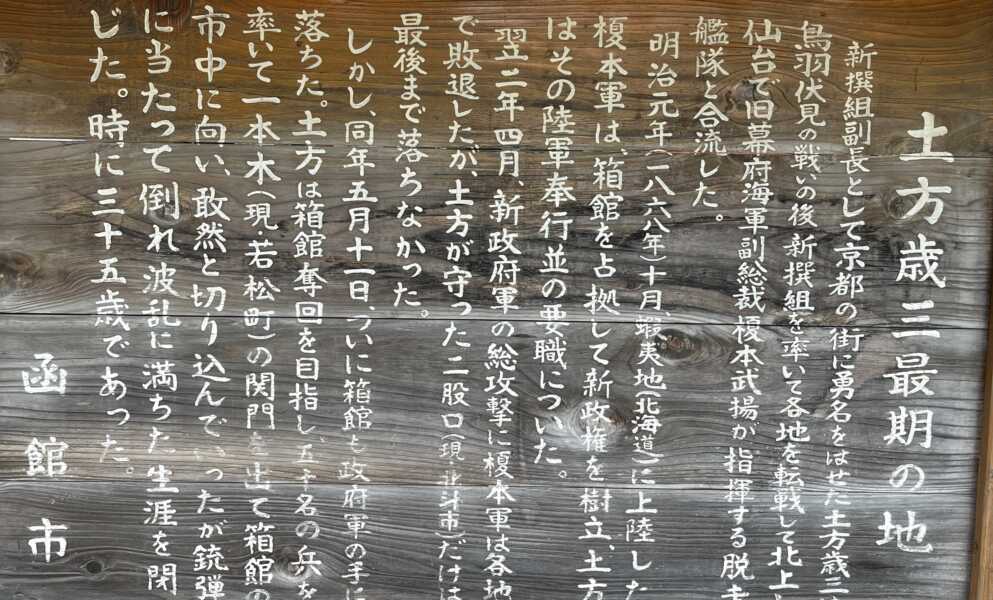 土方歳三最期の地
新撰組副長として京都の街に勇名をはせた土方歳三
鳥羽伏見の戦いの後新撰組を率いて各地を転戦して北上
仙台で旧幕府海軍副総裁榎本武揚が指揮する脱走
艦隊と合流した。
明治元年(一八六八年)十月、蝦夷地(北海道)に上陸した
榎本軍は、箱館を占拠して新政権を樹立、土方
はその陸軍奉行並の要職についた。
翌二年四月、新政府軍の総攻撃に榎本軍は各地
で敗退したが、土方が守った二股口(現・北斗市)だけは
最後まで落ちなかった。
しかし、同年五月十一日、ついに箱館も政府軍の手に
落ちた。土方は箱館奪回を目指し五十名の兵を
率いて一本木(現若松町)の関門を出て箱館の
市中に向い、敢然と切り込んでいったが銃弾
に当たって倒れ波乱に満ちた生涯を閉
じた。時に三十五歳であった。
函館市